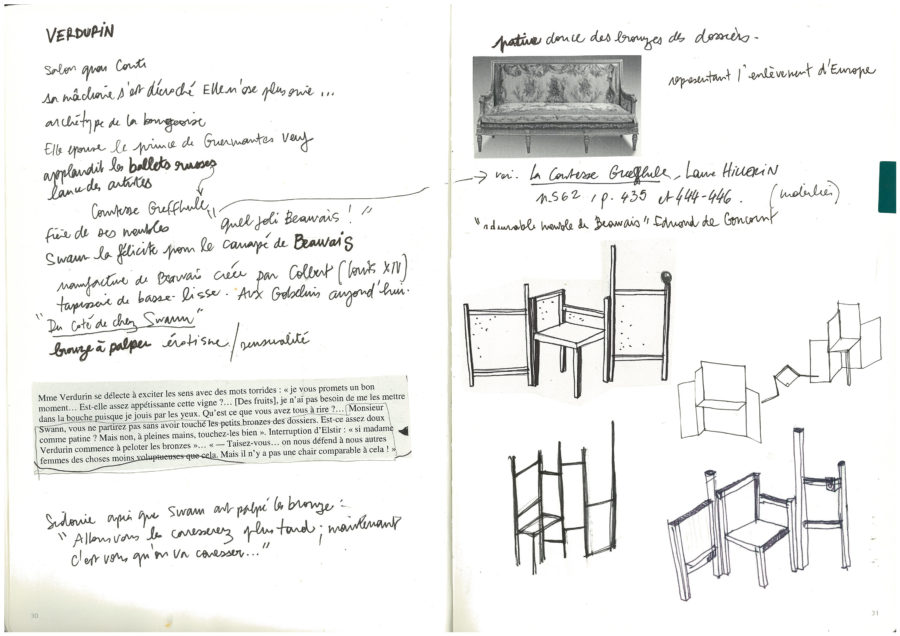 VERDURIN
Salon quai Conti
sa mâchoire s'est décroché Elle n'ose plus rire ...
archétype de la bourgeoisie
Elle épouse le prince de Guermantes veuf
applaudit les ballets russes
lance des artistes
Comtesse Greffhulle
"quel joli Beauvais ! "
fière de ses meubles
Swann la félicite pour le canapé de Beauvais
manufacture de Beauvais créée par Colbert (Louis XIV)
tapisserie de basse-lisse. Aux Gobelins aujourd'hui.
"Du coté de chez Swann"
bronze à palper érotisme / sensualité
Mme Verdurin se délecte à exciter les sens avec des mots torrides : « je vous promets un bon
moment… Est-elle assez appétissante cette vigne ?… [Des fruits], je n'ai pas besoin de me les mettre
dans la bouche puisque je jouis par les yeux. Qu'est ce que vous avez tous à rire ?… Monsieur
Swann, vous ne partirez pas sans avoir touché les petits bronzes des dossiers. Est-ce assez doux
comme patine ? Mais non, à pleines mains, touchez-les bien ». Interruption d'Elstir : « si madame
Verdurin commence à peloter les bronzes »… « — Taisez-vous… on nous défend à nous autres
femmes des choses moins voluptueuses que cela. Mais il n'y a pas une chair comparable à cela ! »
Sidonie après que Swann ait palpé les bronze :
"Allons vous les caresserez plus tard ; maintenant
c'est vous qu'on va caresser..."
30
patine douce des bronzes des dossiers -
représentant l'enlèvement d'Europe
→ voir. La Comtesse Greffhule, Laure HILLERIN
n.562, p. 435 et 444-446. (mobiliés)
"admirable meuble de Beauvais" Edmond de Goncourt
31